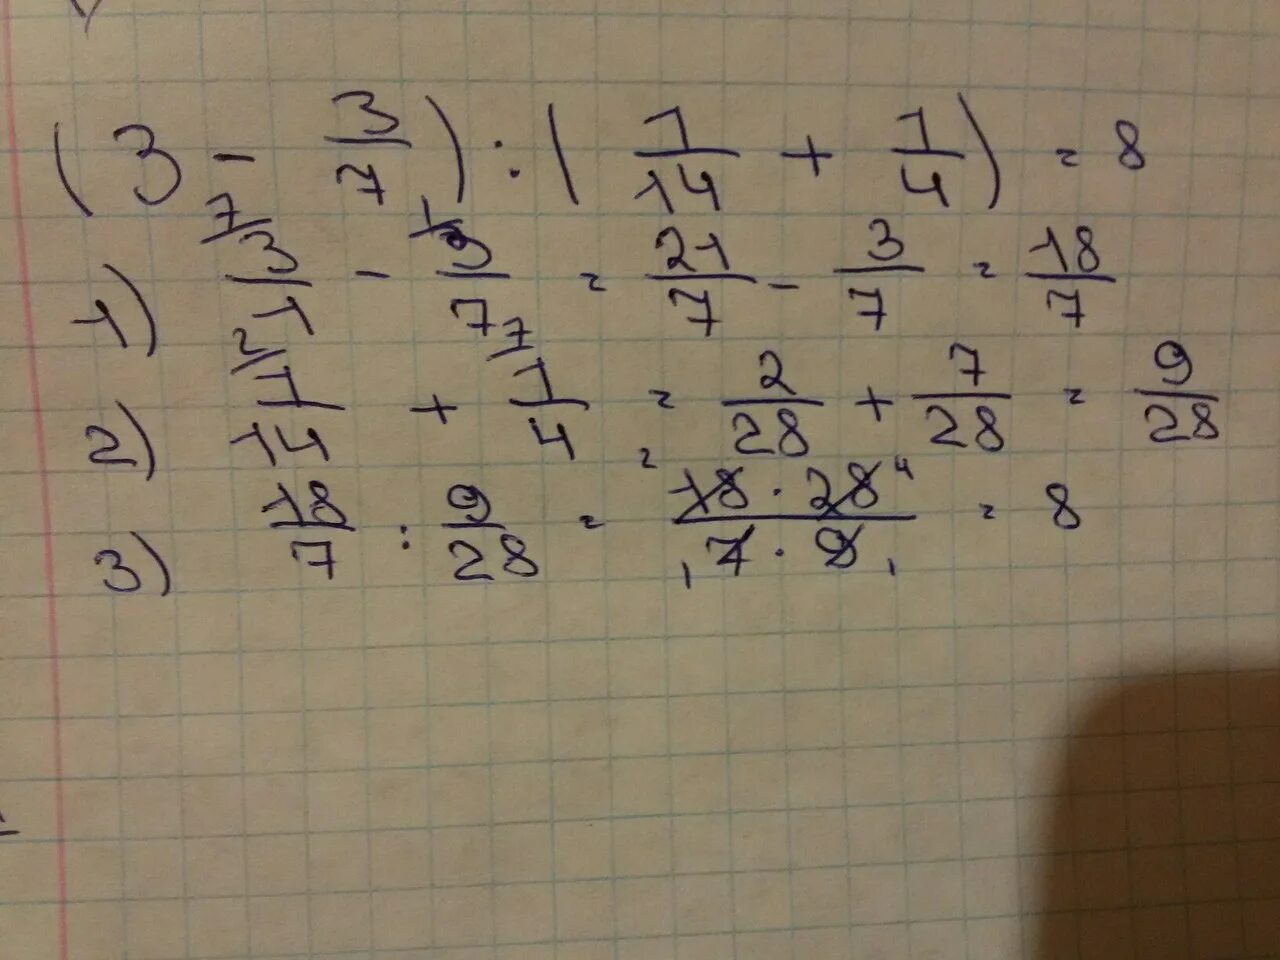 (3 - 3/7) : (1/14 + 1/4) = 8
1) 3/1 - 3/7 = 21/7 - 3/7 = 18/7
2) 1/14 + 1/4 = 2/28 + 7/28 = 9/28
3) 18/7 : 9/28 = 18 · 28 / 7 · 9 = 8